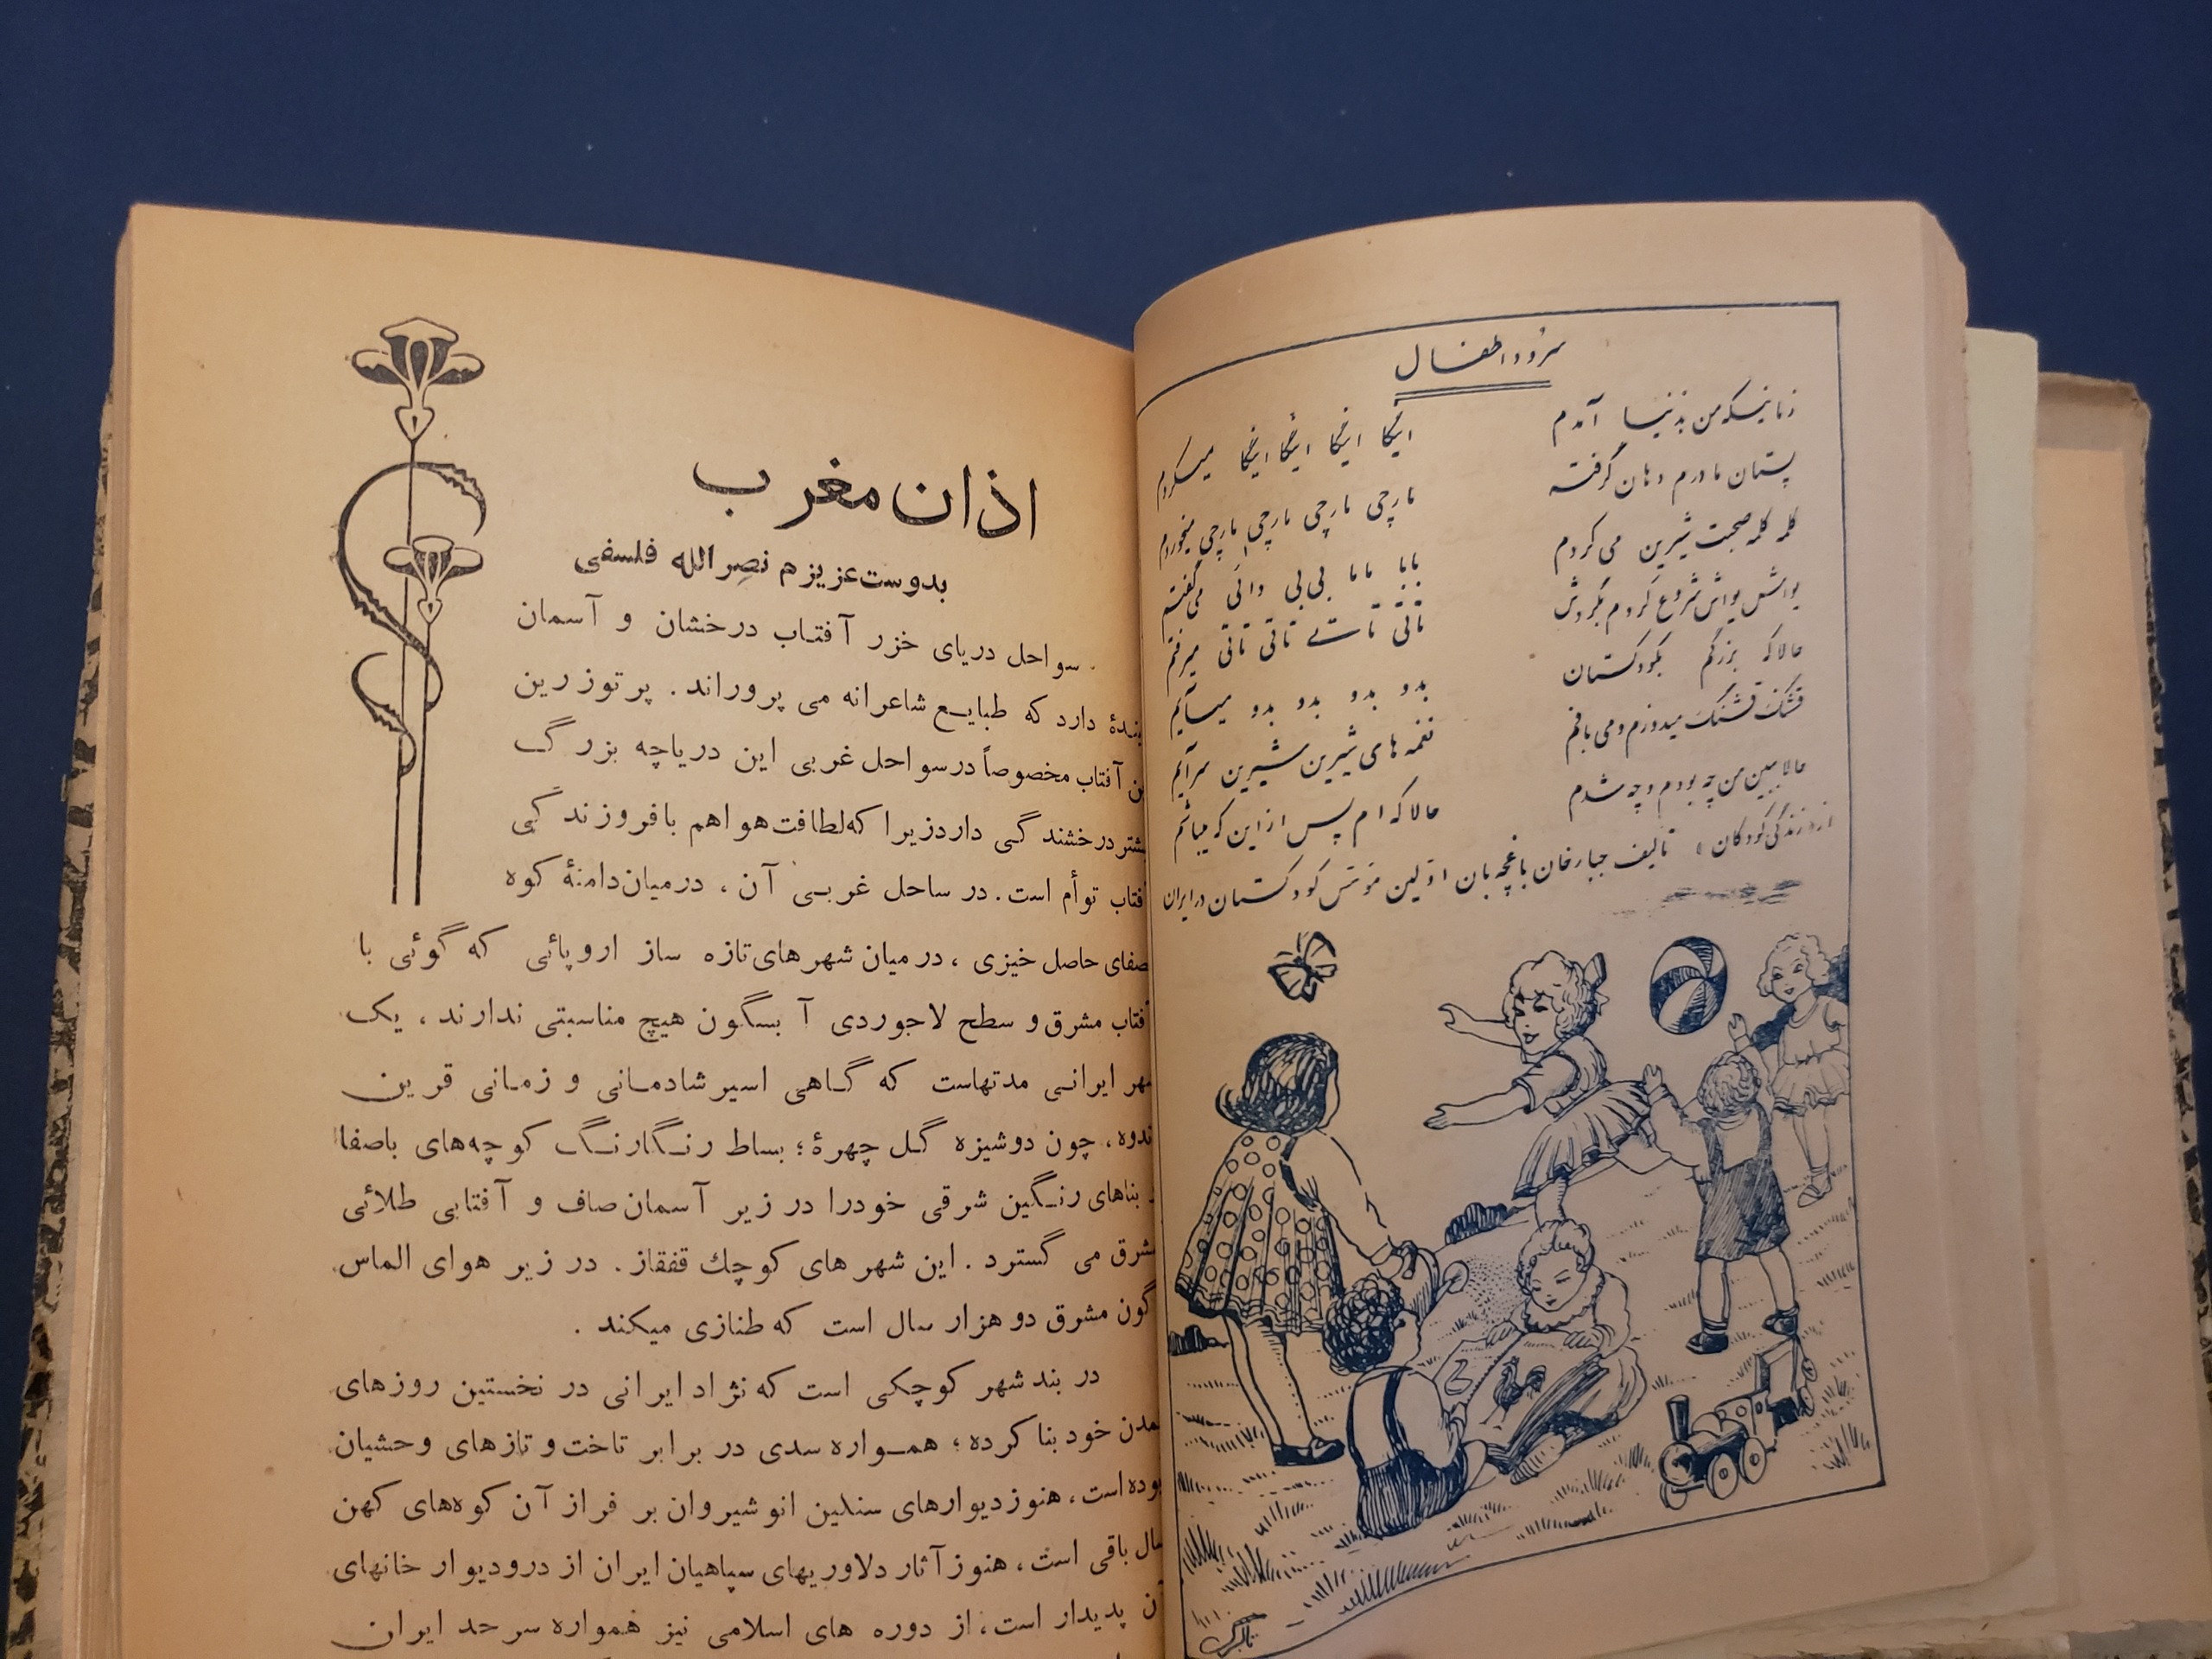 سرود اطفال
زمانیکه من بدنیا آمدم
اینگا اینگا اینگا اینگا میکردم
پستان مادرم دهان گرفته
مارچی مارچی مارچی مارچی میخوردم
کلمه کلمه صحبت شیرین می کردم
بابا ماما بی بی دائی می گفتم
یواش یواش شروع کردم بگردش
تاتی تاتی تاتی تاتی میرفتم
حالا که بزرگم بکودکستان
بدو بدو بدو بدو میآیم
قشنگ قشنگ میدوزم و می بافم
نغمه های شیرین شیرین سرایم
حالا ببین من چه بودم و چه شدم
حالا که ام پس از این که میباشم
از «زندگی کودکان» تألیف جبارخان باغچه بان اولین مؤسس کودکستان در ایران
اذان مغرب
بدوست عزیزم نصرالله فلسفی
سواحل دریای خزر آفتاب درخشان و آسمان
دارد که طبایع شاعرانه می پروراند. پرتو زرین
آفتاب مخصوصاً در سواحل غربی این دریاچه بزرگ
درخشندگی دارد زیرا که لطافت هوا هم با فروزندگی
توأم است. در ساحل غربی آن، در میان دامنهٔ کوه
حاصل خیزی، در میان شهرهای تازه ساز اروپائی که گوئی با
مشرق و سطح لاجوردی آبسگون هیچ مناسبتی ندارند، یک
ایرانی مدتهاست که گاهی اسیر شادمانی و زمانی قرین
چون دوشیزه گل چهرهٔ؛ بساط رنگارنگ کوچه‌های باصفا
بناهای رنگین شرقی خودرا در زیر آسمان صاف و آفتابی طلائی
می گسترد. این شهرهای کوچك قفقاز. در زیر هوای الماس
گون مشرق دو هزار سال است که طنازی میکند.
در بند شهر کوچکی است که نژاد ایرانی در نخستین روزهای
خود بنا کرده؛ همواره سدی در برابر تاخت و تازهای وحشیان
است، هنوز دیوارهای سنگین انوشیروان بر فراز آن کوه‌های کهن
باقی است، هنوز آثار دلاوریهای سپاهیان ایران از درودیوار خانهای
پدیدار است، از دوره های اسلامی نیز همواره سرحد ایران